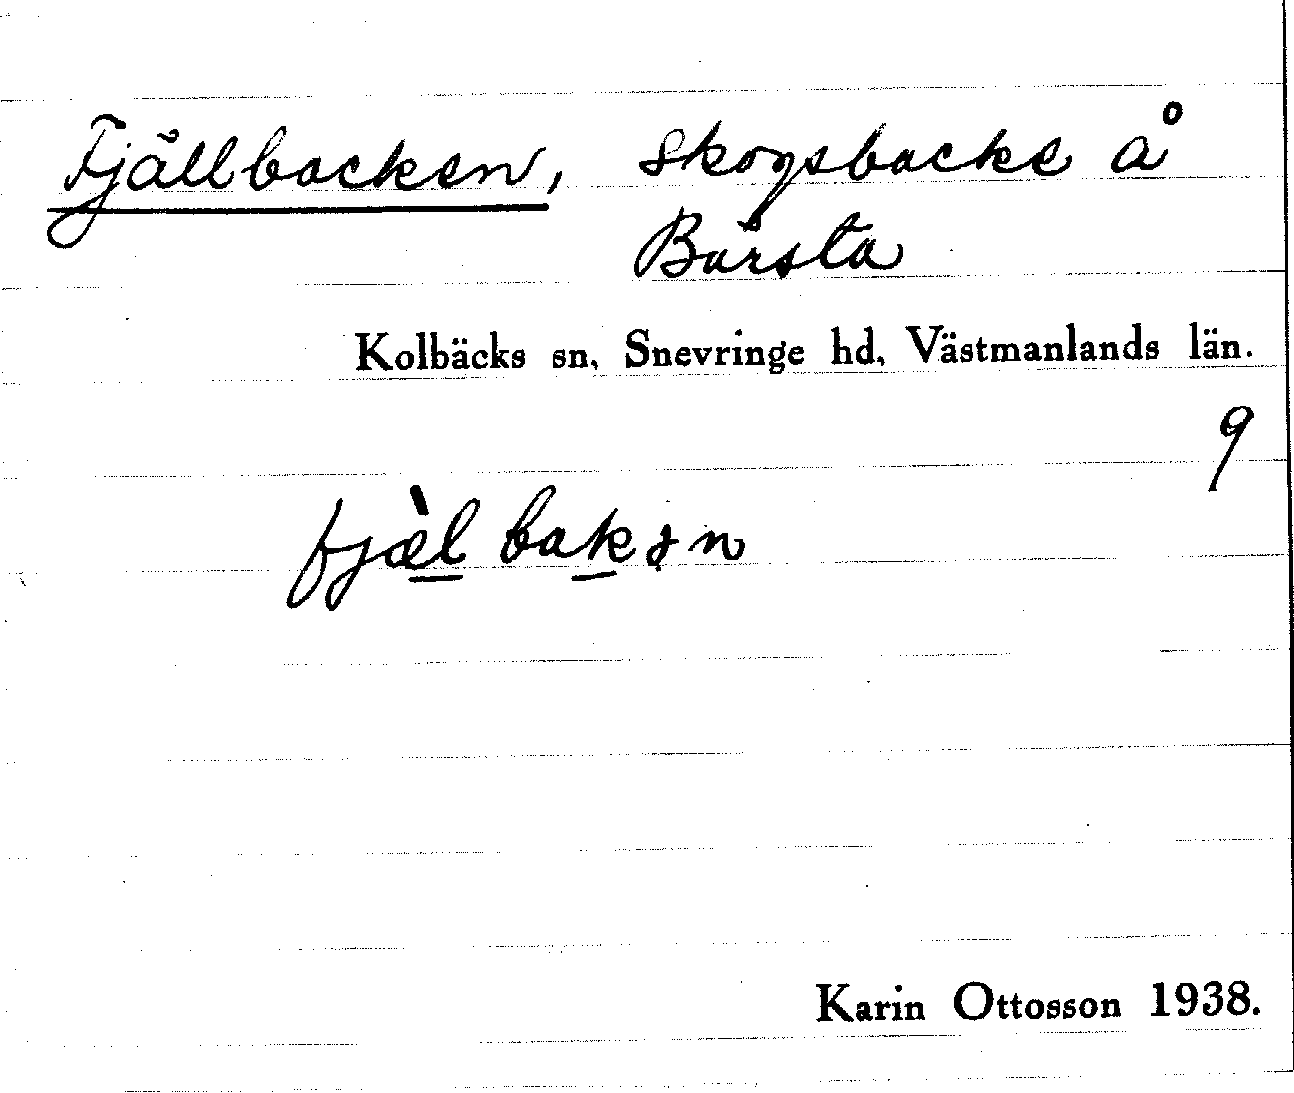 Fjällbacken, skogsbacke å
Bårsta
Kolbäcks sn, Snevringe hd, Västmanlands län.
9
fjæ̀l bakən
Karin Ottosson 1938.